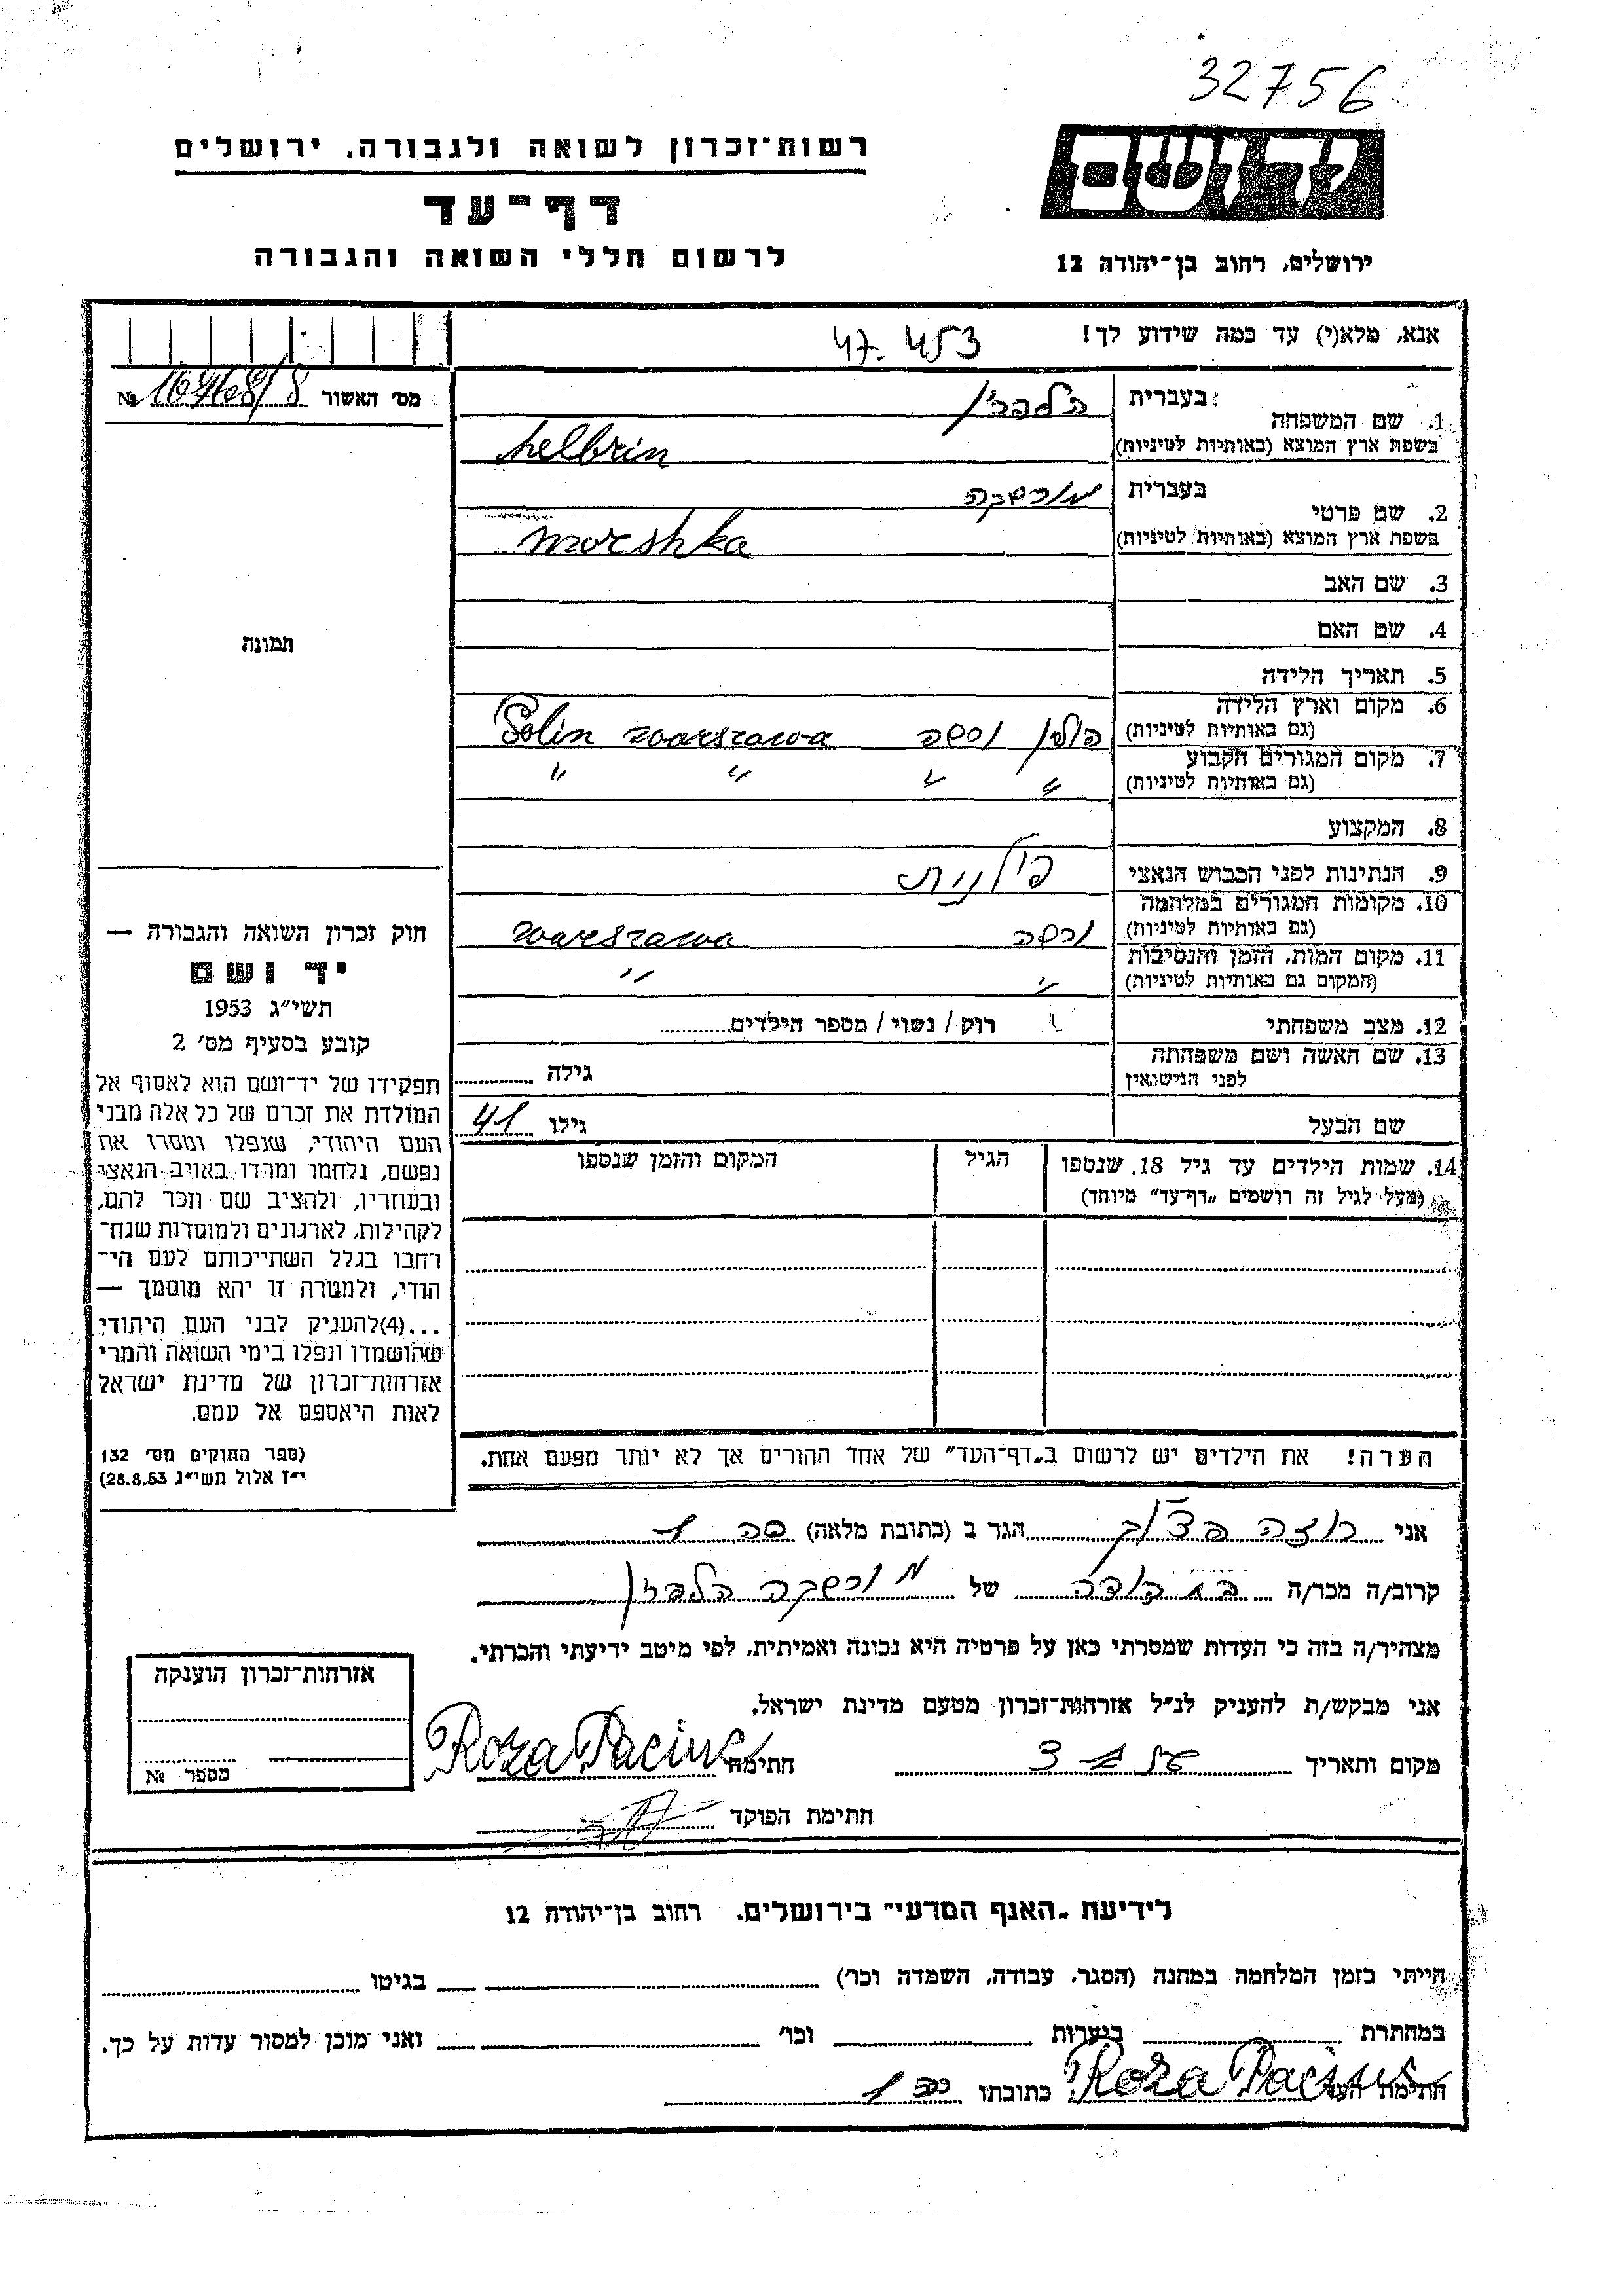 32756
יד ושם
רשות־זכרון לשואה ולגבורה, ירושלים
דף־עד
לרשום חללי השואה והגבורה
ירושלים, רחוב בן־יהודה 12
אנא, מלא(י) עד כמה שידוע לך!
47.453
מס׳ האשור № 16468/8
1. שם המשפחה בעברית: הלברין
בשפת ארץ המוצא (באותיות לטיניות) helbrin
2. שם פרטי בעברית מורשקה
בשפת ארץ המוצא (באותיות לטיניות) morshka
3. שם האב
4. שם האם
תמונה
5. תאריך הלידה
6. מקום וארץ הלידה
(גם באותיות לטיניות) פולין ורשה Polin warszawa
7. מקום המגורים הקבוע
(גם באותיות לטיניות) " " " "
8. המקצוע
9. הנתינות לפני הכבוש הנאצי פולנית
10. מקומות המגורים במלחמה
(גם באותיות לטיניות) ורשה warszawa
11. מקום המות, הזמן והנסיבות
(המקום גם באותיות לטיניות) " "
12. מצב משפחתי רוק / נשוי / מספר הילדים
13. שם האשה ושם משפחתה
לפני הנישואין גילה
שם הבעל גילו 41
14. שמות הילדים עד גיל 18, שנספו הגיל המקום והזמן שנספו
(מעל לגיל זה רושמים „דף־עד״ מיוחד)
חוק זכרון השואה והגבורה —
יד ושם
תשי״ג 1953
קובע בסעיף מס׳ 2
תפקידו של יד־ושם הוא לאסוף אל
המולדת את זכרם של כל אלה מבני
העם היהודי, שנפלו ומסרו את
נפשם, נלחמו ומרדו באויב הנאצי
ובעוזריו, ולהציב שם וזכר להם,
לקהילות, לארגונים ולמוסדות שנח־
רחבו בגלל השתייכותם לעם הי־
הודי, ולמטרה זו יהא מוסמך —
...(4)להעניק לבני העם היהודי
שהושמדו ונפלו בימי השואה והמרי
אזרחות־זכרון של מדינת ישראל
לאות היאספם אל עמם.
(ספר החוקים מס׳ 132
י״ז אלול תשי״ג 28.8.53)
הערה! את הילדים יש לרשום ב„דף־העד״ של אחד ההורים אך לא יותר מפעם אחת.
אני רוזה הגר ב (כתובת מלאה)
קרוב/ה מכר/ה בת דודה של מורשקה הלברין
מצהיר/ה בזה כי העדות שמסרתי כאן על פרטיה היא נכונה ואמיתית, לפי מיטב ידיעתי והכרתי.
אני מבקש/ת להעניק לנ״ל אזרחות־זכרון מטעם מדינת ישראל.
מקום ותאריך חתימה Roza
חתימת הפוקד
אזרחות־זכרון הוענקה
מספר №
לידיעת „האגף המדעי״ בירושלים, רחוב בן־יהודה 12
הייתי בזמן המלחמה במחנה (הסגר, עבודה, השמדה וכו׳) בגיטו
במחתרת ביערות וכו׳ ואני מוכן למסור עדות על כך.
חתימת העד Roza כתובתו